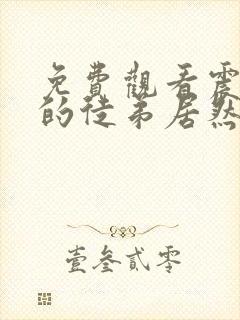 免費觀看震
的徒弟居然
壹叁貳零